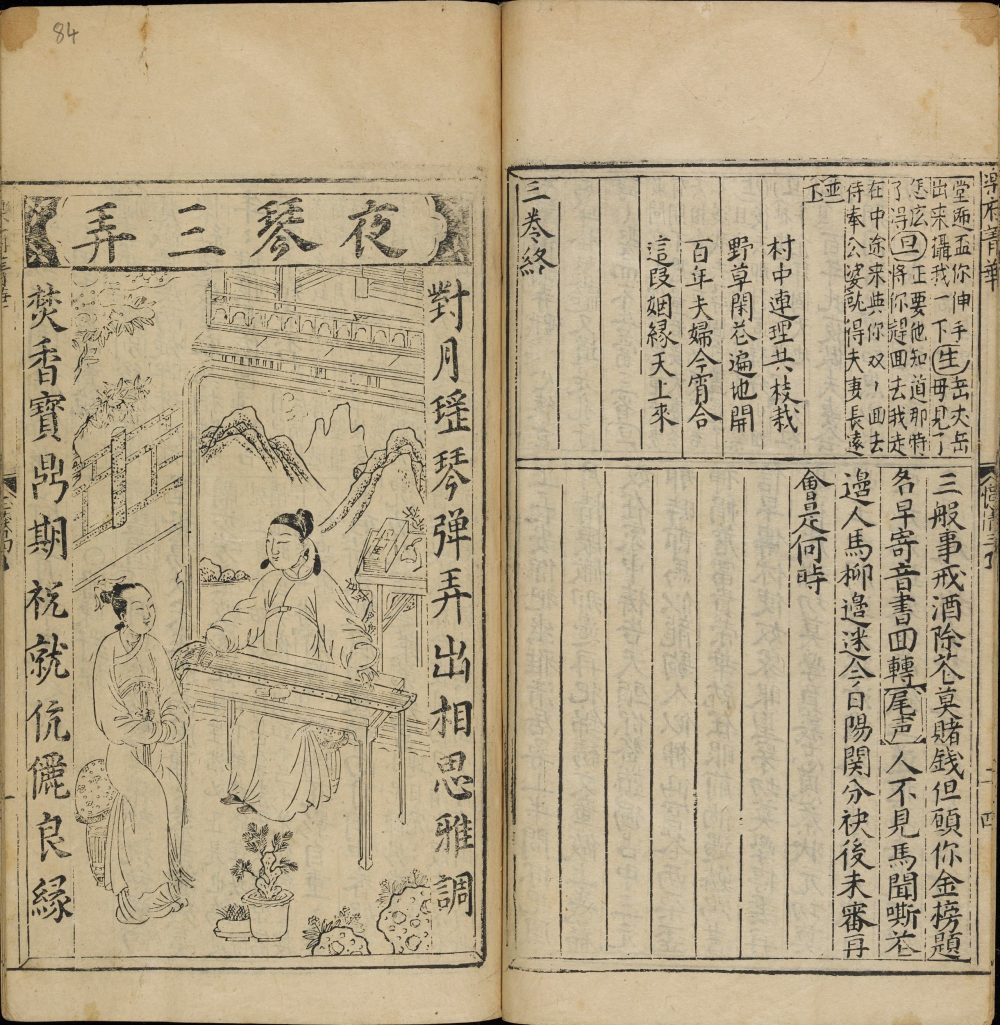 堂遞盃你伸手
出來攝我一下生岳丈岳
毋見了
怎庅旦正要他知道那時
了得旦將你謖回去我走
在中途來與你双〻回去
侍奉公婆就得夫妻長遠
並下
村中連理共枝栽
野草閑花遍地開
百年夫婦今宵合
這叚姻縁天上來
三卷終
三般事戒酒除花莫賭錢但頋你金榜題
名早寄音書囬轉尾声人不見馬聞嘶花
邉人馬柳邉迷今日陽関分袂後未審再
會是何時
夜琴三弄
對月瑶琴弹弄出相思雅調
焚香寳鼎期祝就伉儷良縁
84